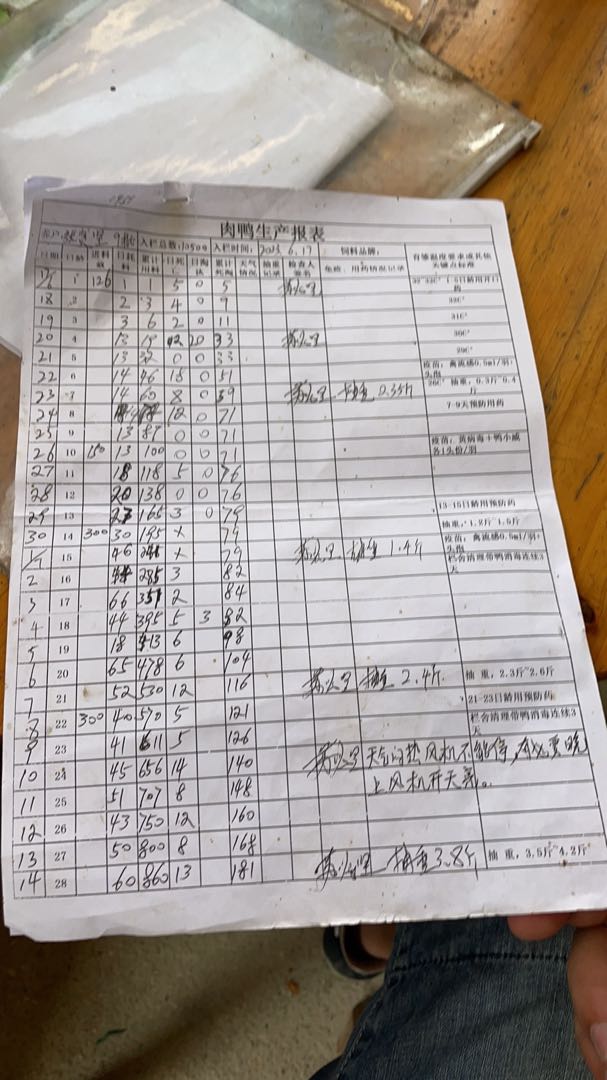 肉鸭生产报表
入栏总数:10500 入栏时间: 2025 6.17 饲料品牌:
日期 日龄 进料数 日耗料 累计用料 日死亡 日淘汰 累计死淘 天气情况 抽重记录 检查人签名 免疫、用药情况记录 育雏温度要求或其他关键点标准
1 126 1 1 5 0 5 1-5日龄用开口药
18 2 2 3 4 0 9 33C°
19 3 3 6 2 0 11 31C°
20 4 13 19 20 33 30C°
21 5 13 32 0 0 33 29C°
22 6 14 46 18 0 51 疫苗:禽流感0.5ml/羽·头孢
23 7 14 60 8 0 59 抽重 0.35斤 28C° 抽重,0.3斤~0.4斤
24 8 12 0 71 7-9天预防用药
25 9 13 87 0 0 71
26 10 150 13 100 0 0 71 疫苗:黄病毒+鸭小威各1头份/羽
27 11 18 118 5 0 76
28 12 20 138 0 0 76
29 13 27 165 3 0 79 13-15日龄用预防药
30 14 300 30 195 x 79 抽重,1.2斤~1.5斤
1/7 15 46 241 x 79 抽重 1.4斤 疫苗:禽流感0.5ml/羽·头孢
2 16 44 285 3 82 栏舍清理带鸭消毒连续3天
3 17 66 351 2 84
4 18 44 395 5 3 92
5 19 18 413 6 98
6 20 65 478 6 104
7 21 52 530 12 116 抽重 2.4斤 抽重,2.3斤~2.6斤
8 22 300 40 570 5 121 21-23日龄用预防药
9 23 41 611 5 126 栏舍清理带鸭消毒连续3天
10 24 45 656 14 140 天气闷热风机不能停,有必要晚
11 25 51 707 8 148 上风机开天亮。
12 26 43 750 12 160
13 27 50 800 8 168
14 28 60 860 13 181 抽重3.8斤 抽重,3.5斤~4.2斤